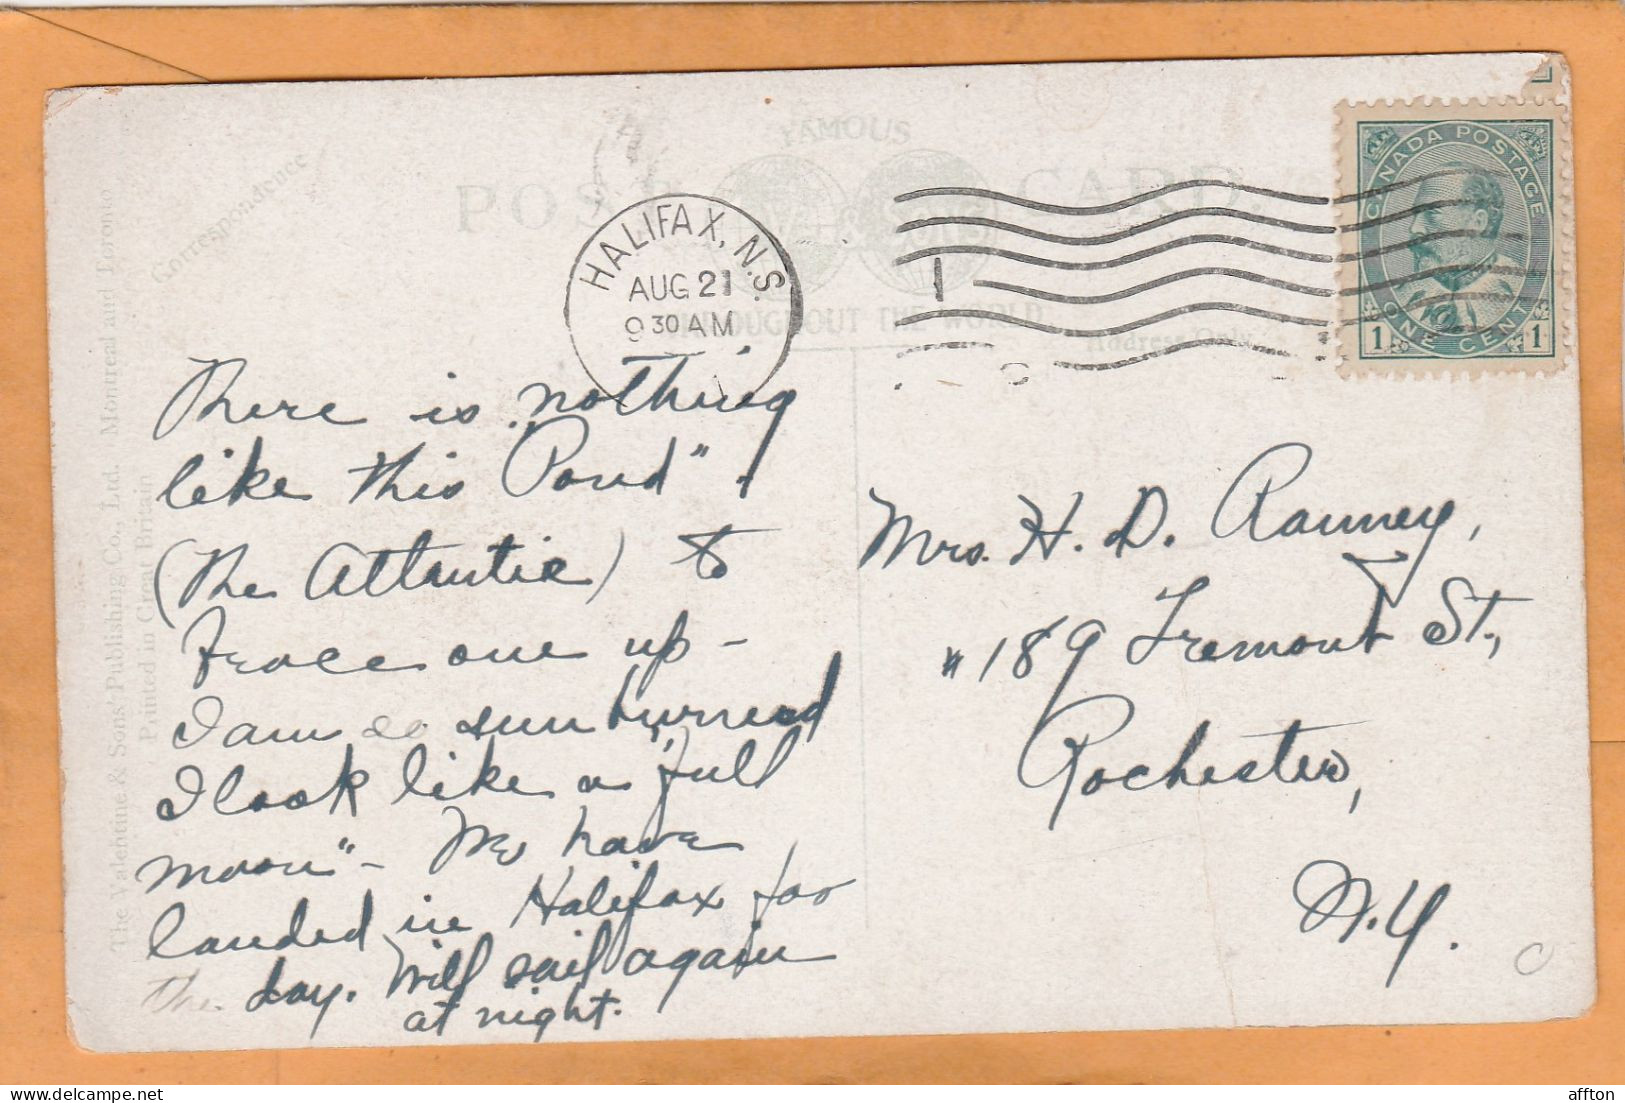 FAMOUS
POST CARD.
THROUGHOUT THE WORLD
Correspondence
Address Only
The Valentine & Sons' Publishing Co., Ltd. Montreal and Toronto
Printed in Great Britain
HALIFAX, N.S.
AUG 21
9 30 AM
1
CANADA POSTAGE
1 ONE CENT 1
There is nothing
like this Pond"
(The Atlantic) to
brace one up -
I am so sun burned
I look like a "full
moon" - We have
landed in Halifax for
the day. Will sail again
at night.
Mrs. H. D. Ranney,
" 189 Fremont St.,
Rochester,
N.Y.
C
affton